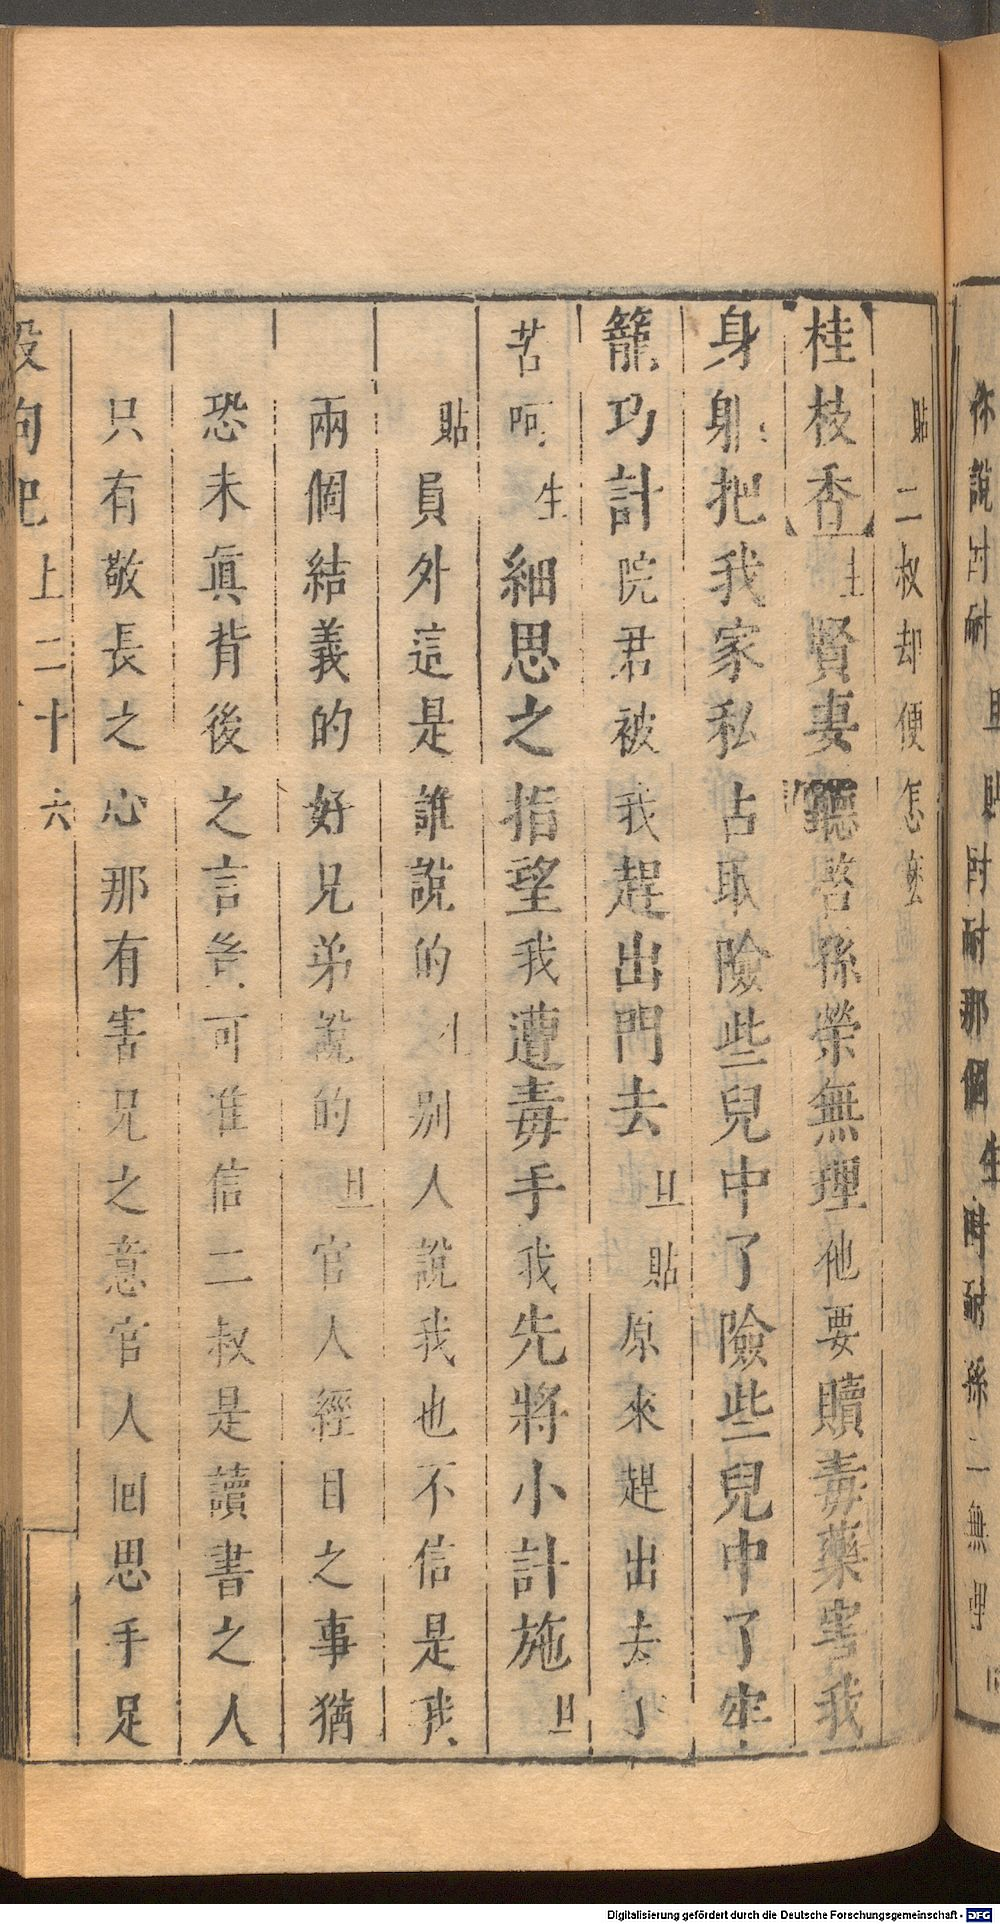 你說忖耐 旦 貼 忖耐那個 生 忖耐孫二無理
貼 二叔却便怎麽
桂枝香 生 賢妻聽啓孫榮無理他要贖毒藥害我
身躬把我家私占取險些兒中了險些兒中了牢
籠巧計院君被我趕出門去 旦 貼 原來趕出去了
苦呵 生 細思之指望我遭毒手我先將小計施 旦
貼 員外這是誰說的 生 别人說我也不信是我
兩個結義的好兄弟說的 旦 官人經目之事猶
恐未眞背後之言豈可准信二叔是讀書之人
只有敬長之心那有害兄之意官人囬思手足
殺狗記 上 二十六
Digitalisierung gefördert durch die Deutsche Forschungsgemeinschaft - DFG